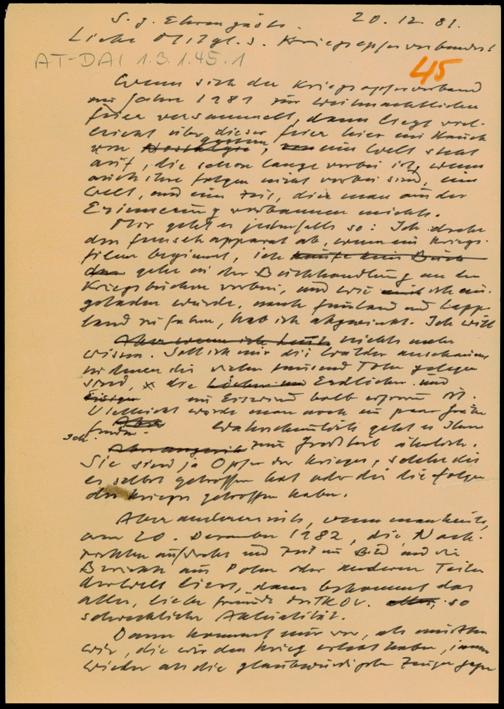 S. g. Ehrengäste. 20.12.81.
Liebe Mitgl. d. Kriegsopferverbandes
AT-DAI 1.3.1.45.1
45
Wenn sich der Kriegsopferverband
im Jahre 1981 zur weihnachtlichen
Feier versammelt, dann liegt viel-
leicht über dieser Feier hier ein Hauch
von Nostalgie, eine Welt steht
auf, die schon lange vorbei ist, wenn
auch ihre Folgen nicht vorbei sind, eine
Welt, und eine Zeit, die man aus der
Erinnerung verbannen möchte.
Mir geht es jedenfalls so: Ich drehe
den Fernsehapparat ab, wenn ein Kriegs-
film beginnt, ich kaufe kein Buch
gehe in der Buchhandlung an den
Kriegsbüchern vorbei, und wie ich ein-
geladen wurde, nach Finnland und Lapp-
land zu fahren, hab ich abgewinkt. Ich will
Aber wenn ich heute nichts mehr
wissen. Soll ich mir die Wälder anschauen
in denen die vielen tausend Toten gelegen
sind, x die Endlichen und
im Eiswind halb erfroren ist.
Vielleicht würde man noch ein paar Gräber
finden. Wahrscheinlich geht es Ihnen
zum Großteil ähnlich.
Sie sind ja Opfer des Krieges, solche die
es selbst getroffen hat oder die die Folgen
des Krieges getroffen haben.
Aber andererseits, wenn man heute,
am 20. Dezember 1982, die Nach-
richten aufdreht und Zeit im Bild und die
Berichte aus Polen oder anderen Teilen
der Welt liest, dann bekommt das
alles, liebe Freunde des TKOV. so
schreckliche Aktualität.
Dann kommt mir vor, als müßten
wir, die wir den Krieg erlebt haben, immer
wieder als die glaubwürdigsten Zeugen gegen